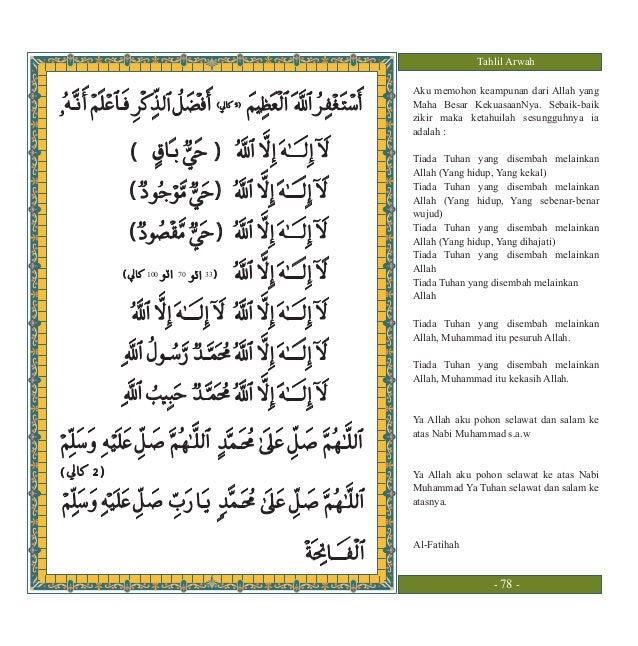 أَسْتَغْفِرُ ٱللَّهَ ٱلْعَظِيْمَ (3 كالي) أَفْضَلُ ٱلذِّكْرِ فَٱعْلَمْ أَنَّهُ
لَآ إِلَـٰهَ إِلَّا ٱللَّهُ ( حَيٌّ بَاقٍ )
لَآ إِلَـٰهَ إِلَّا ٱللَّهُ ( حَيٌّ مَّوْجُودٌ )
لَآ إِلَـٰهَ إِلَّا ٱللَّهُ ( حَيٌّ مَّقْصُودٌ )
لَآ إِلَـٰهَ إِلَّا ٱللَّهُ (33 اتو 70 اتو 100 كالي)
لَآ إِلَـٰهَ إِلَّا ٱللَّهُ لَآ إِلَـٰهَ إِلَّا ٱللَّهُ
لَآ إِلَـٰهَ إِلَّا ٱللَّهُ مُحَمَّدٌ رَّسُولُ ٱللَّهِ
لَآ إِلَـٰهَ إِلَّا ٱللَّهُ مُحَمَّدٌ حَبِيبُ ٱللَّهِ
ٱللَّهُمَّ صَلِّ عَلَىٰ مُحَمَّدٍ ٱللَّهُمَّ صَلِّ عَلَيْهِ وَسَلِّمْ
(2 كالي)
ٱللَّهُمَّ صَلِّ عَلَىٰ مُحَمَّدٍ يَا رَبِّ صَلِّ عَلَيْهِ وَسَلِّمْ
ٱلْفَاتِحَةْ
Tahlil Arwah
Aku memohon keampunan dari Allah yang
Maha Besar KekuasaanNya. Sebaik-baik
zikir maka ketahuilah sesungguhnya ia
adalah :
Tiada Tuhan yang disembah melainkan
Allah (Yang hidup, Yang kekal)
Tiada Tuhan yang disembah melainkan
Allah (Yang hidup, Yang sebenar-benar
wujud)
Tiada Tuhan yang disembah melainkan
Allah (Yang hidup, Yang dihajati)
Tiada Tuhan yang disembah melainkan
Allah
Tiada Tuhan yang disembah melainkan
Allah
Tiada Tuhan yang disembah melainkan
Allah, Muhammad itu pesuruh Allah.
Tiada Tuhan yang disembah melainkan
Allah, Muhammad itu kekasih Allah.
Ya Allah aku pohon selawat dan salam ke
atas Nabi Muhammad s.a.w
Ya Allah aku pohon selawat ke atas Nabi
Muhammad Ya Tuhan selawat dan salam ke
atasnya.
Al-Fatihah
- 78 -